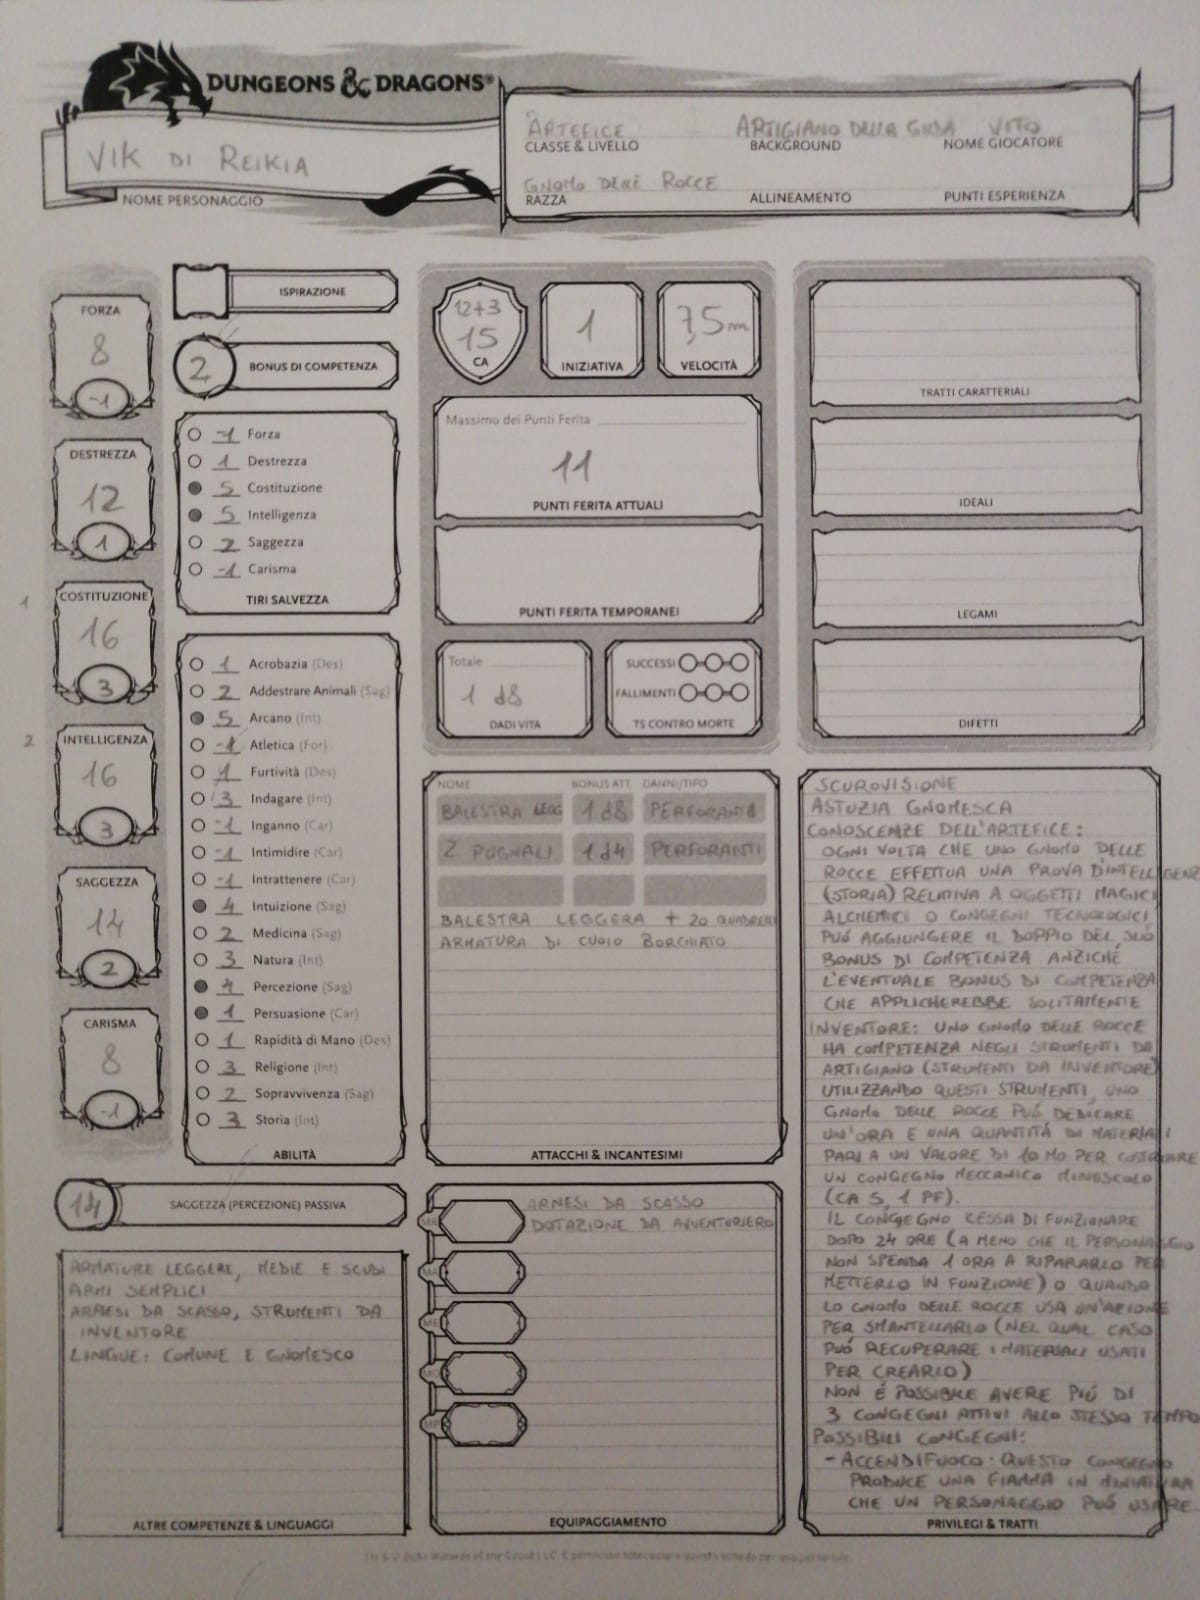 DUNGEONS & DRAGONS®
VIK DI REIKIA
NOME PERSONAGGIO
ARTEFICE
CLASSE & LIVELLO
ARTIGIANO DELLA GILDA
BACKGROUND
VITO
NOME GIOCATORE
GNOMO DELLE ROCCE
RAZZA
ALLINEAMENTO
PUNTI ESPERIENZA
FORZA
8
-1
DESTREZZA
12
1
1
COSTITUZIONE
16
3
2
INTELLIGENZA
16
3
SAGGEZZA
14
2
CARISMA
8
-1
ISPIRAZIONE
2 BONUS DI COMPETENZA
-1 Forza
1 Destrezza
5 Costituzione
5 Intelligenza
2 Saggezza
-1 Carisma
TIRI SALVEZZA
1 Acrobazia (Des)
2 Addestrare Animali (Sag)
5 Arcano (Int)
-1 Atletica (For)
1 Furtività (Des)
3 Indagare (Int)
-1 Inganno (Car)
-1 Intimidire (Car)
-1 Intrattenere (Car)
4 Intuizione (Sag)
2 Medicina (Sag)
3 Natura (Int)
4 Percezione (Sag)
1 Persuasione (Car)
1 Rapidità di Mano (Des)
3 Religione (Int)
2 Sopravvivenza (Sag)
3 Storia (Int)
ABILITÀ
14 SAGGEZZA (PERCEZIONE) PASSIVA
ARMATURE LEGGERE, MEDIE E SCUDI
ARMI SEMPLICI
ARNESI DA SCASSO, STRUMENTI DA
INVENTORE
LINGUE: COMUNE E GNOMESCO
ALTRE COMPETENZE & LINGUAGGI
12+3
15
CA
1
INIZIATIVA
7,5m
VELOCITÀ
Massimo dei Punti Ferita
11
PUNTI FERITA ATTUALI
PUNTI FERITA TEMPORANEI
Totale
1 d8
DADI VITA
SUCCESSI
FALLIMENTI
TS CONTRO MORTE
NOME BONUS ATT. DANNI/TIPO
BALESTRA LEGG 1d8 PERFORANTI
2 PUGNALI 1d4 PERFORANTI
BALESTRA LEGGERA + 20 QUADRELLI
ARMATURA DI CUOIO BORCHIATO
ATTACCHI & INCANTESIMI
MR
MA
ME
MO
MP
ARNESI DA SCASSO
DOTAZIONE DA AVVENTURIERO
EQUIPAGGIAMENTO
TRATTI CARATTERIALI
IDEALI
LEGAMI
DIFETTI
SCUROVISIONE
ASTUZIA GNOMESCA
CONOSCENZE DELL'ARTEFICE:
OGNI VOLTA CHE UNO GNOMO DELLE
ROCCE EFFETTUA UNA PROVA D'INTELLIGENZ
(STORIA) RELATIVA A OGGETTI MAGICI
ALCHEMICI O CONGEGNI TECNOLOGICI,
PUÓ AGGIUNGERE IL DOPPIO DEL SUO
BONUS DI COMPETENZA ANZICHÉ
L'EVENTUALE BONUS DI COMPETENZA
CHE APPLICHEREBBE SOLITAMENTE
INVENTORE: UNO GNOMO DELLE ROCCE
HA COMPETENZA NEGLI STRUMENTI DA
ARTIGIANO (STRUMENTI DA INVENTORE)
UTILIZZANDO QUESTI STRUMENTI, UNO
GNOMO DELLE ROCCE PUÓ DEDICARE
UN'ORA E UNA QUANTITÁ DI MATERIALI
PARI A UN VALORE DI 10 MO PER COSTRUIRE
UN CONGEGNO MECCANICO MINUSCOLO
(CA 5, 1 PF).
IL CONGEGNO CESSA DI FUNZIONARE
DOPO 24 ORE (A MENO CHE IL PERSONAGGIO
NON SPENDA 1 ORA A RIPARARLO PER
METTERLO IN FUNZIONE) O QUANDO
LO GNOMO DELLE ROCCE USA UN'AZIONE
PER SMANTELLARLO (NEL QUAL CASO
PUÓ RECUPERARE I MATERIALI USATI
PER CREARLO)
NON É POSSIBILE AVERE PIÚ DI
3 CONGEGNI ATTIVI ALLO STESSO TEMPO
POSSIBILI CONGEGNI:
- ACCENDIFUOCO: QUESTO CONGEGNO
PRODUCE UNA FIAMMA IN MINIATURA
CHE UN PERSONAGGIO PUÓ USARE
PRIVILEGI & TRATTI
TM & © 2014 Wizards of the Coast LLC. È permesso fotocopiare questa scheda per uso personale.